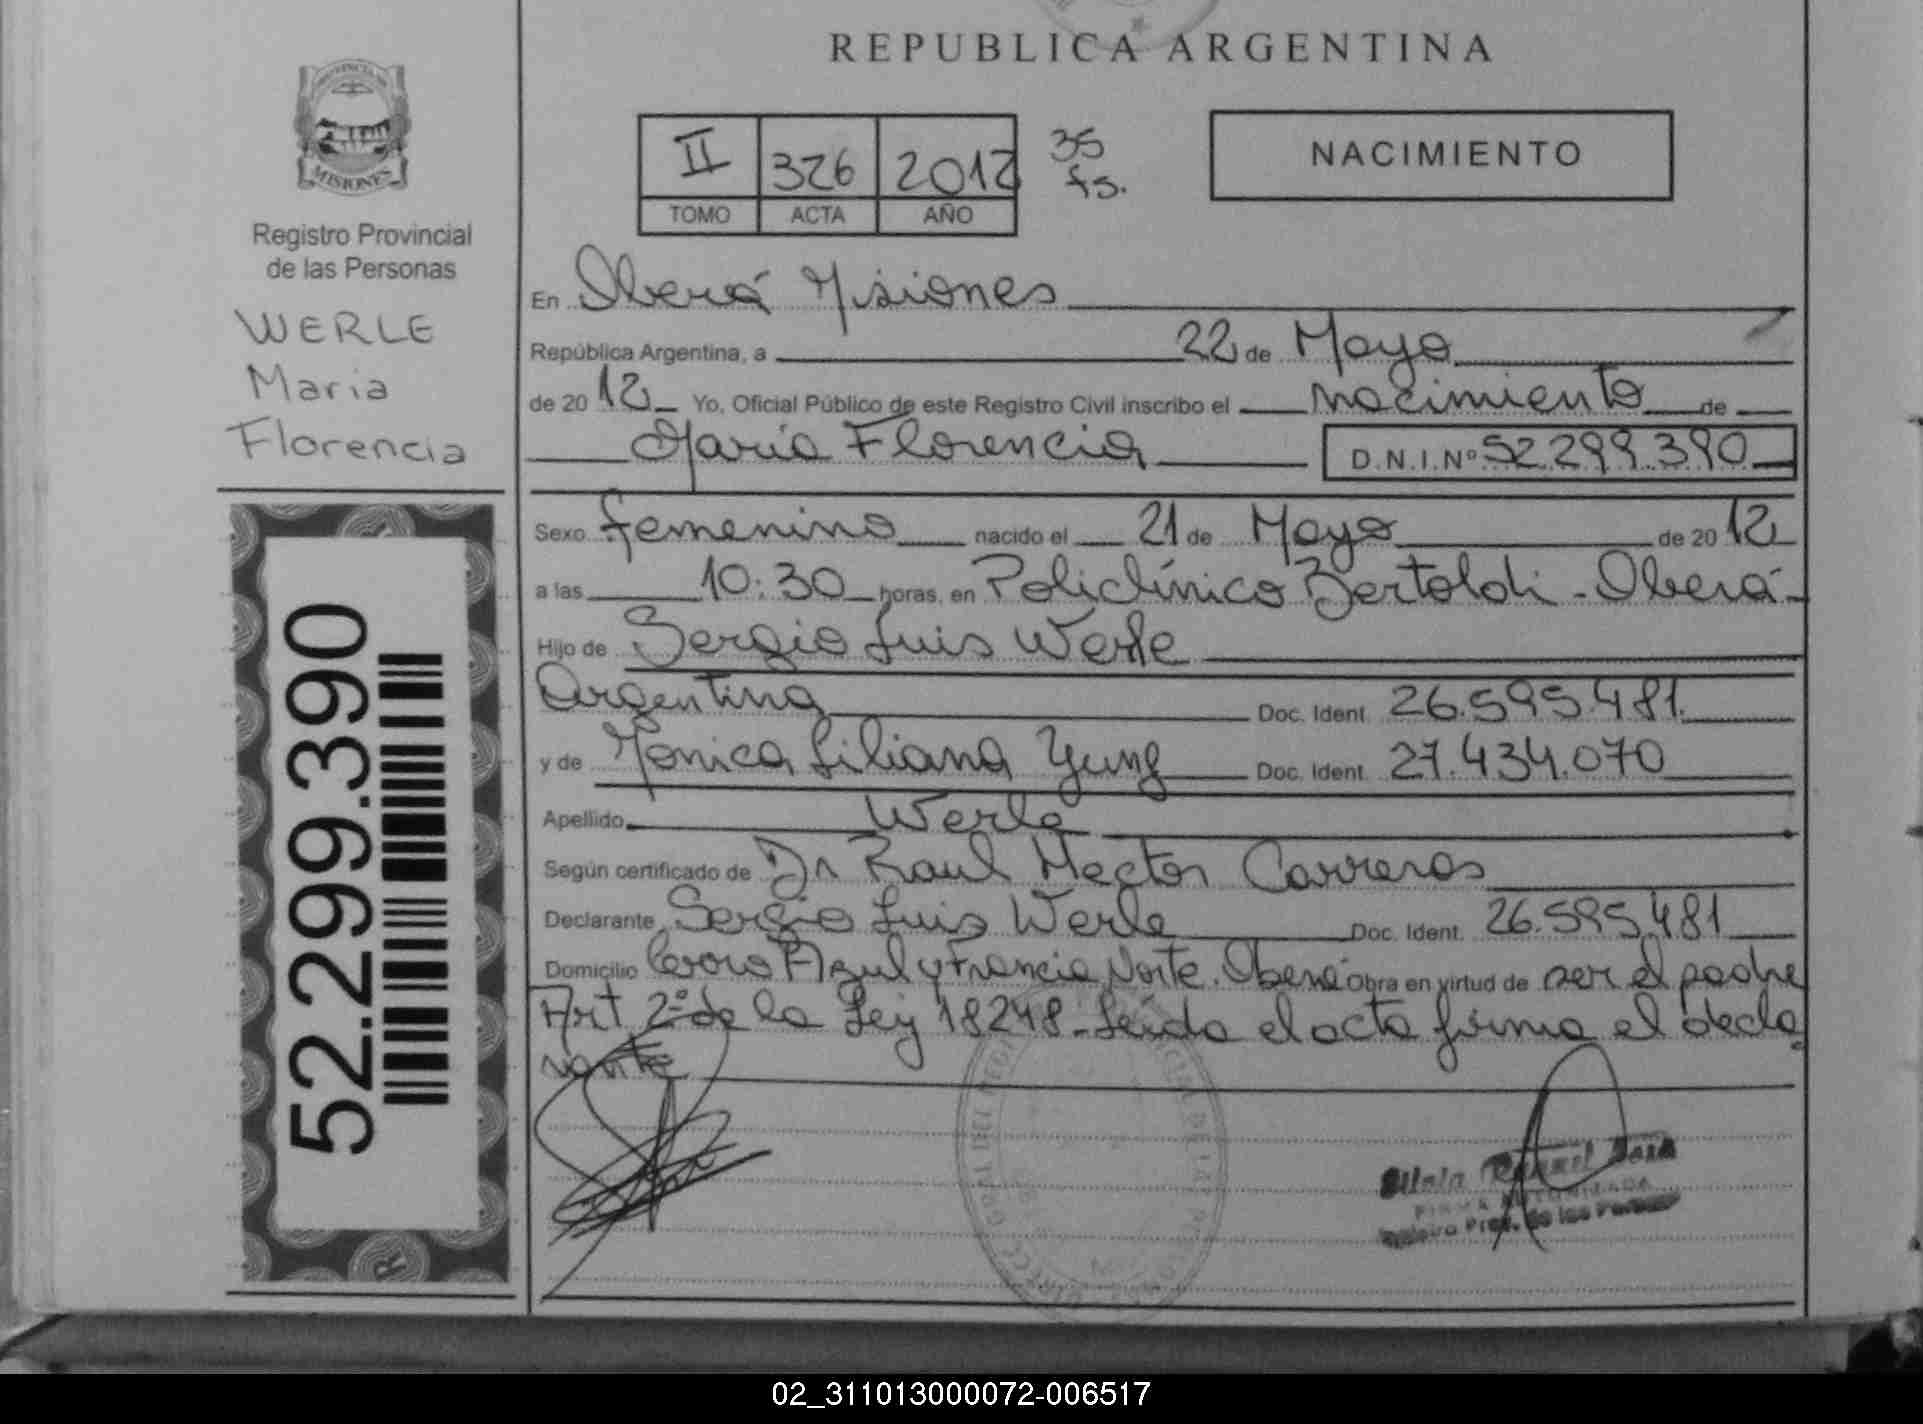 REPUBLICA ARGENTINA
PROVINCIA DE
MISIONES
Registro Provincial
de las Personas
WERLE
Maria
Florencia
52.299.390
II 326 2012 35 fs.
TOMO ACTA AÑO
NACIMIENTO
En Oberá Misiones
República Argentina, a 22 de Mayo
de 20 12 Yo, Oficial Público de este Registro Civil inscribo el nacimiento de
María Florencia D.N.I.Nº 52.299.390
Sexo femenino nacido el 21 de Mayo de 20 12
a las 10:30 horas, en Policlínico Bertoldi - Oberá -
Hijo de Sergio Luis Werle
Argentina Doc. Ident. 26.595.481.
y de Monica Liliana Yung Doc. Ident. 27.434.070
Apellido Werle
Según certificado de Dr Raul Hector Carreras
Declarante Sergio Luis Werle Doc. Ident. 26.595.481
Domicilio Cerro Azul y Francia Norte. Oberá Obra en virtud de ser el padre
Art 2º de la Ley 18248 - Leída el acta firma el decla
rante
FIRMA AUTORIZADA
Prov. de las Personas
02_311013000072-006517